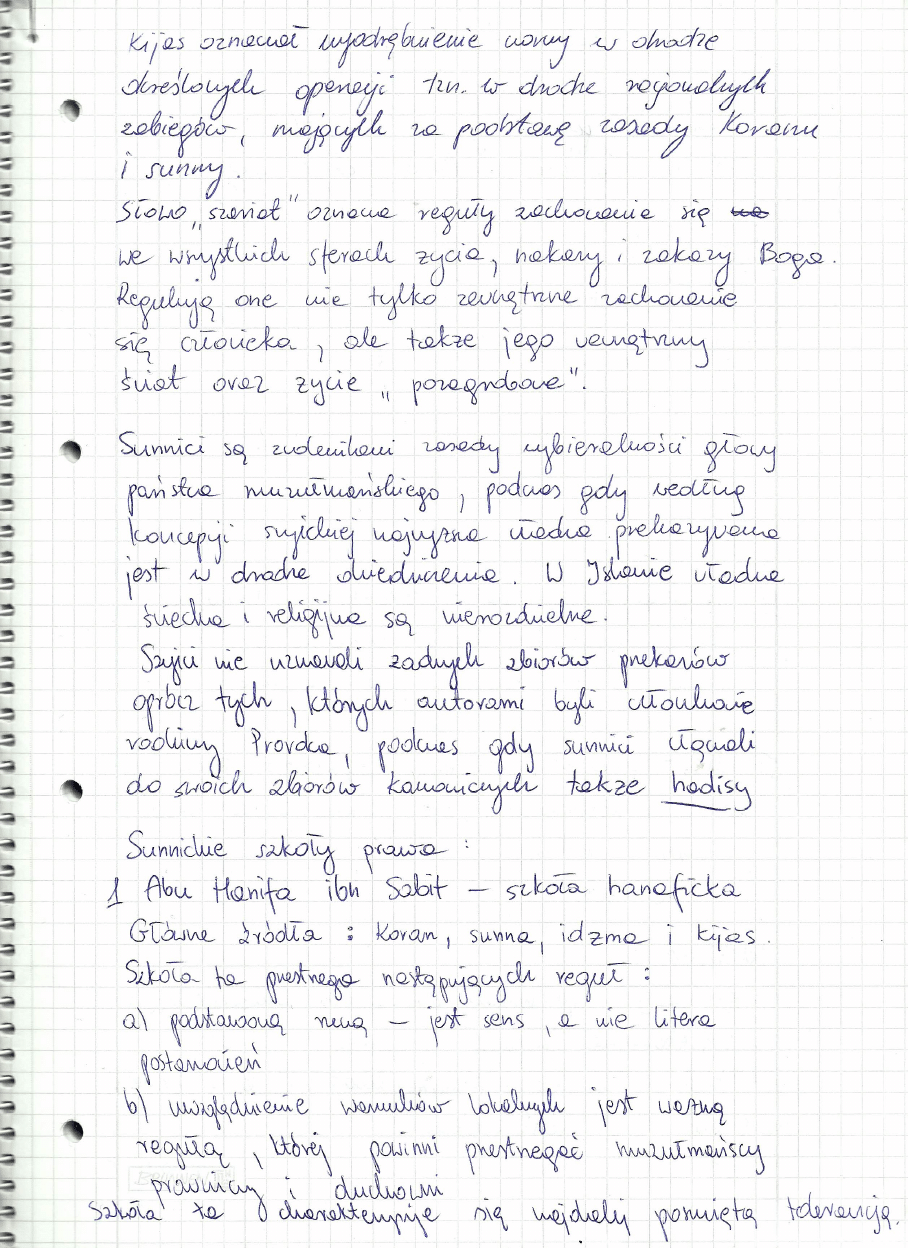 Kijas oznaczał wyodrębnienie normy w drodze
określonych operacji tzn. w drodze racjonalnych
zabiegów, mających za podstawę zasady Koranu
i sunny.
Słowo „szariat" oznacza reguły zachowania się na
we wszystkich sferach życia, nakazy i zakazy Boga.
Regulują one nie tylko zewnętrzne zachowanie
się człowieka, ale także jego wewnętrzny
świat oraz życie „pozagrobowe".
Sunnici są zwolennikami zasady wybieralności głowy
państwa muzułmańskiego, podczas gdy według
koncepcji szyickiej najwyższa władza przekazywana
jest w drodze dziedziczenia. W Islamie władza
świecka i religijna są nierozdzielne.
Szyici nie uznawali żadnych zbiorów przekazów
oprócz tych, których autorami byli członkowie
rodziny Proroka, podczas gdy sunnici włączali
do swoich zbiorów kanonicznych także hadisy
Sunnickie szkoły prawa :
1 Abu Hanifa ibn Sabit – szkoła hanaficka
Główne źródła : Koran, sunna, idżma i kijas.
Szkoła ta przestrzega następujących reguł :
a) podstawową rzeczą – jest sens, a nie litera
postanowień
b) uwzględnienie warunków lokalnych jest ważną
regułą, której powinni przestrzegać muzułmańscy
prawnicy i duchowni
Szkoła ta charakteryzuje się najdalej posuniętą tolerancją.